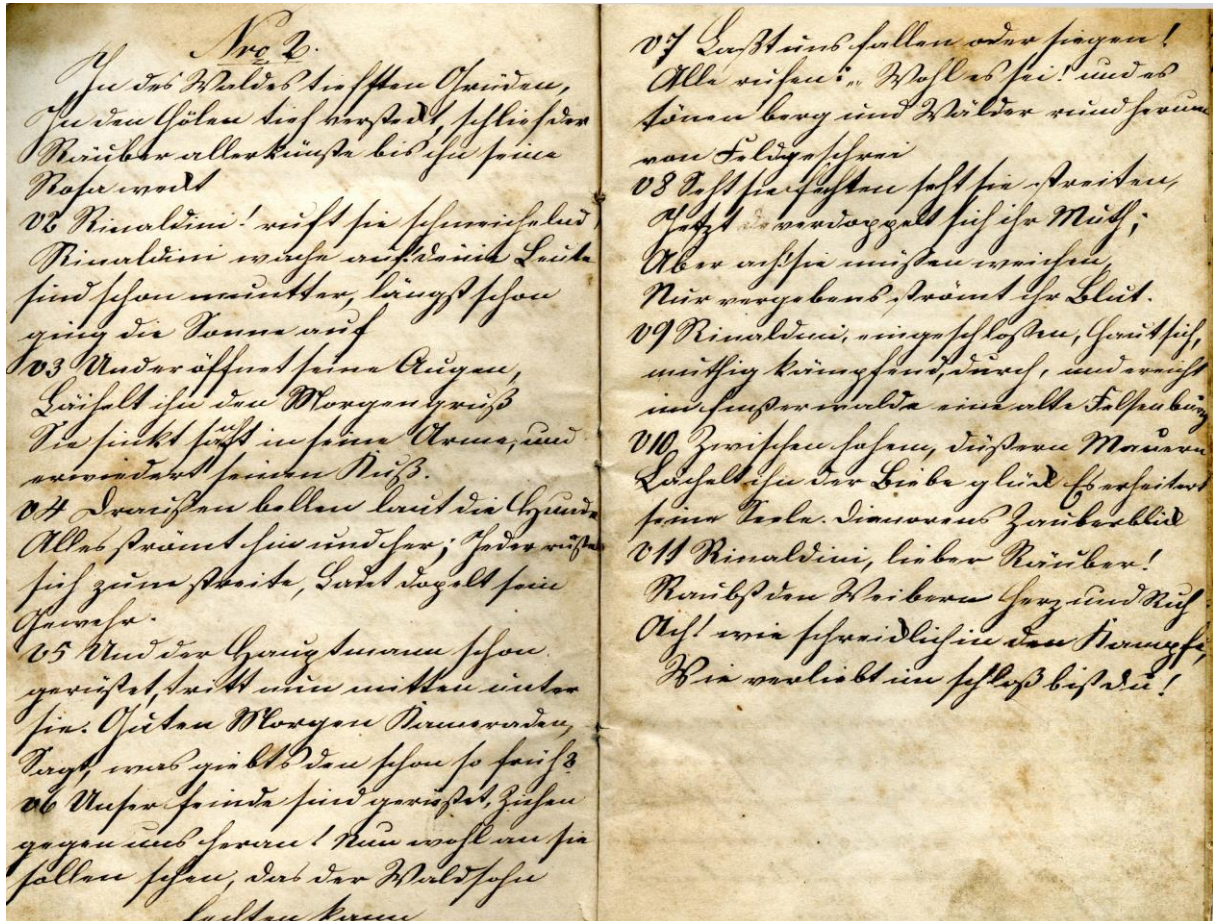 Nro. 2.
In des Waldes tiefsten Grüden,
In den Hölen tief versteckt, schlief der
Räuber allerkünste bis ihn seine
Rosa weckt
v2 Rinaldini! ruft sie schmeichelnd,
Rinaldini wache auf! deine Leute
sind schon muntter, längst schon
ging die Sonne auf
v3 Und er öffnet seine Augen,
Lächelt ihn den Morgengruß
Sie sinkt sanft in seine Arme, und
erwiedert seinen Kuß.
v4 Draußen bellen laut die Hunde
Alles strömt hin und her; Jeder rüstet
sich zum streite, Ladet dopelt sein
Gewehr.
v5 Und der Hauptmann schon
gerüstet, tritt nun mitten unter
sie. Guten Morgen Kameraden,
Sagt, was giebts den schon so früh?
v6 Unser feinde sind gerüstet, Ziehen
gegen uns heran! Nun wohl an sie
sollen sehen, das der Waldsohn
fechten kann
v7 Laßt uns fallen oder siegen!
Alle rufen: „Wohl es sei! und es
tönen berg und Wälder rund herum
von Feldgeschrei
v8 Seht sie fechten seht sie streiten,
Jetzt verdoppelt sich ihr Muth;
Aber ach! sie müßen weichen,
Nur vergebens strömt ihr Blut.
v9 Rinaldini, eingeschloßen, haut sich,
muthig kämpfend, durch, und ereicht
im finster walde eine alte Felsenburg
v10 Zwischen hohem, düstern Mauern
Lächelt ihn der Liebe glück Es erheitert
seine Seele. Dianorens Zauberblick
v11 Rinaldini, lieber Räuber!
Raubst den Weibern Herz und Ruh
Ach! wie schrecklich in den Kampfe,
Wie verliebt im schloß bist du!